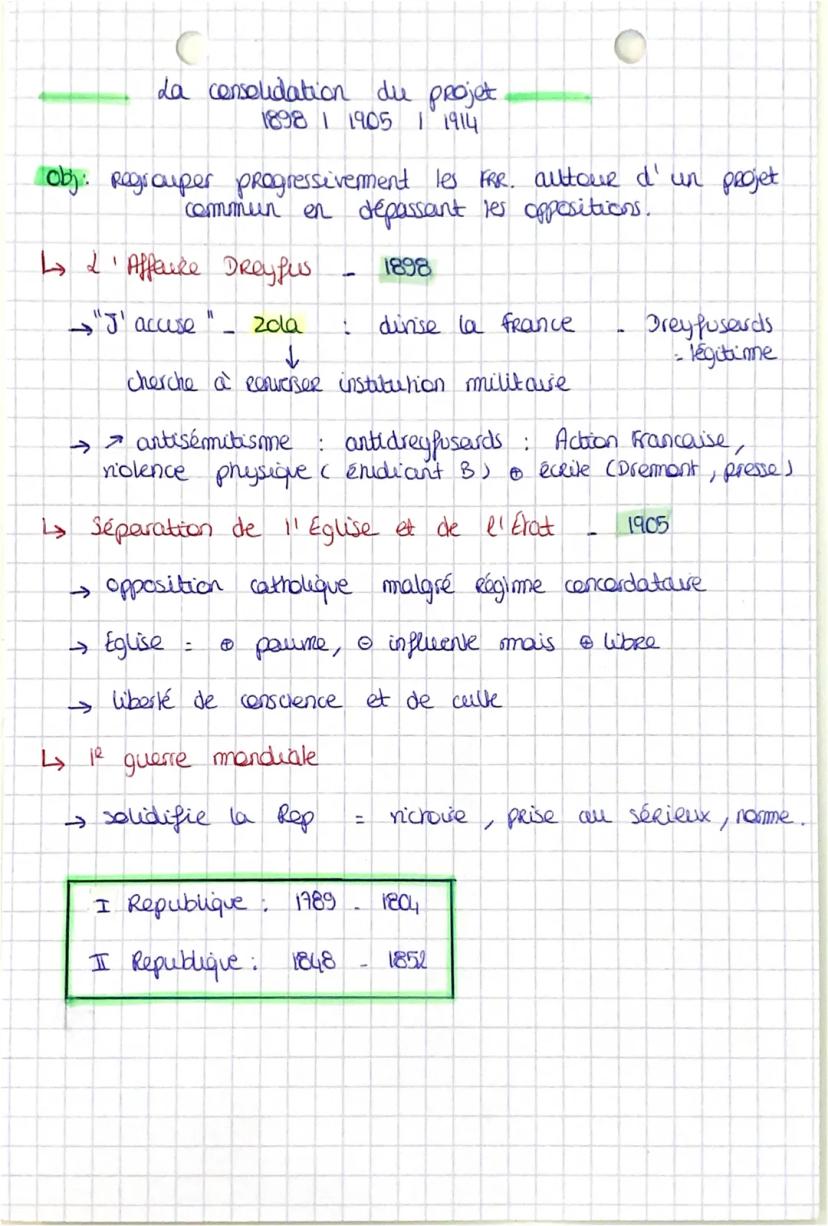 La consolidation du projet
1898 | 1905 | 1914
Obj: Regrouper progressivement les FRR. autour d'un projet
commun en dépassant les oppositions.
↳ L'Affaire Dreyfus - 1898
→ "J'accuse" - Zola : divise la France - Dreyfusards
= légitime
↓
cherche à renverser institution militaire
→ ↗ antisémitisme : antidreyfusards : Action Francaise,
violence physique ( étudiant B) ⊕ écrite (Dremont, presse)
↳ Séparation de l'Église et de l'État - 1905
→ opposition catholique malgré régime concordataire
→ Église = ⊕ pauvre, ⊖ influente mais ⊕ libre
→ liberté de conscience et de culte
↳ 1e guerre mondiale
→ solidifie la Rep = victoire, prise au sérieux, norme.
I Republique : 1789 - 1804
II Republique : 1848 - 1852